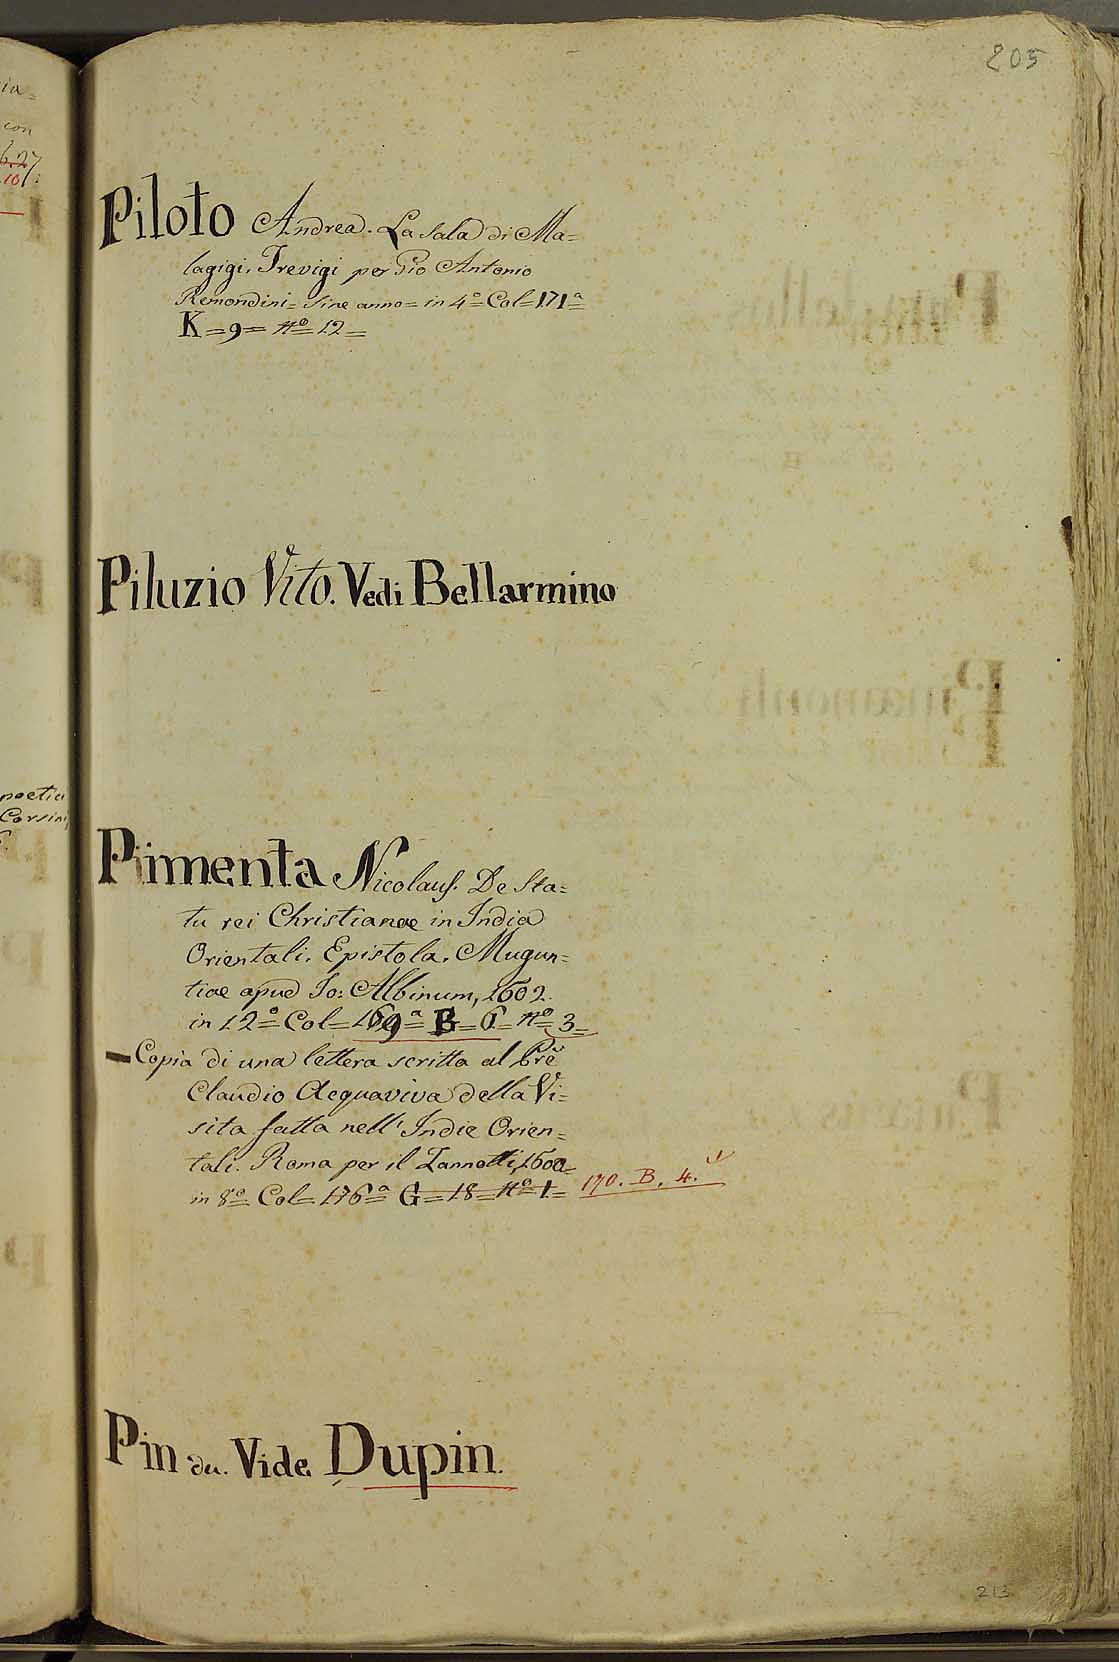 205
Piloto Andrea. La Sala di Ma=
lagigi. Trevigi per Gio Antonio
Remondini= sine anno= in 4º= Col=171ª=
K=9= nº=12=
Piluzio Vito. Vedi Bellarmino
Pimenta Nicolaus. De Sta=
tu rei Christianae in India
Orientali. Epistola. Mugun=
tiae apud Io: Albinum, 1602.
in 12º= Col=169ª= B=6= nº=3=
Copia di una lettera scritta al Prẽ
Claudio Acquaviva della Vi=
sita fatta nell' Indie Orien=
tali. Roma per il Zannetti, 1600=
in 8º= Col=176ª= G=18=nº=1= 170. B. 4.
Pin du. Vide Dupin.
213
con
6.27
10
poetia
Corsini